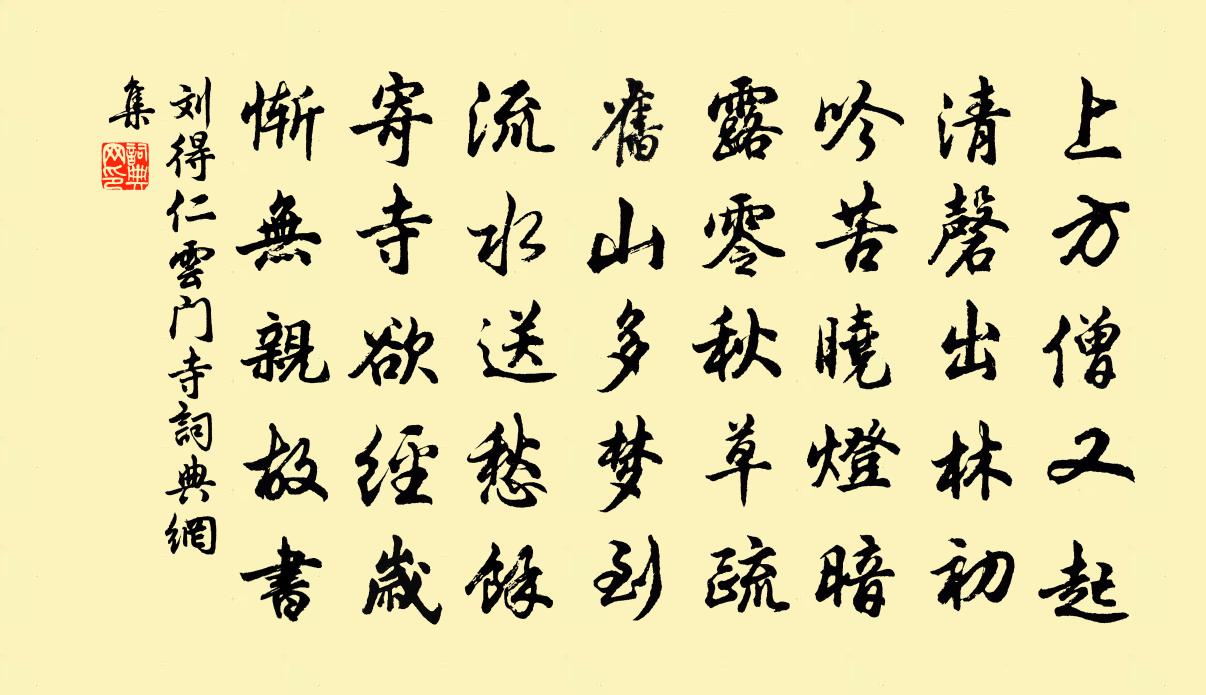 上方僧又起
清磬出林初
吟苦曉燈暗
露零秋草疏
舊山多梦到
流水送愁餘
寄寺欲經歲
慚無親故書
刘得仁雲门寺詞典網
集
詞典网印